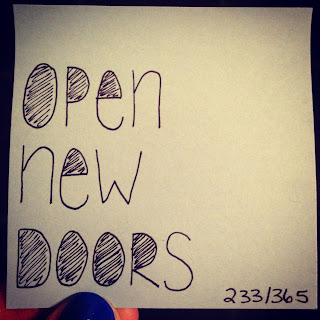 open
new
DOORS
233/365